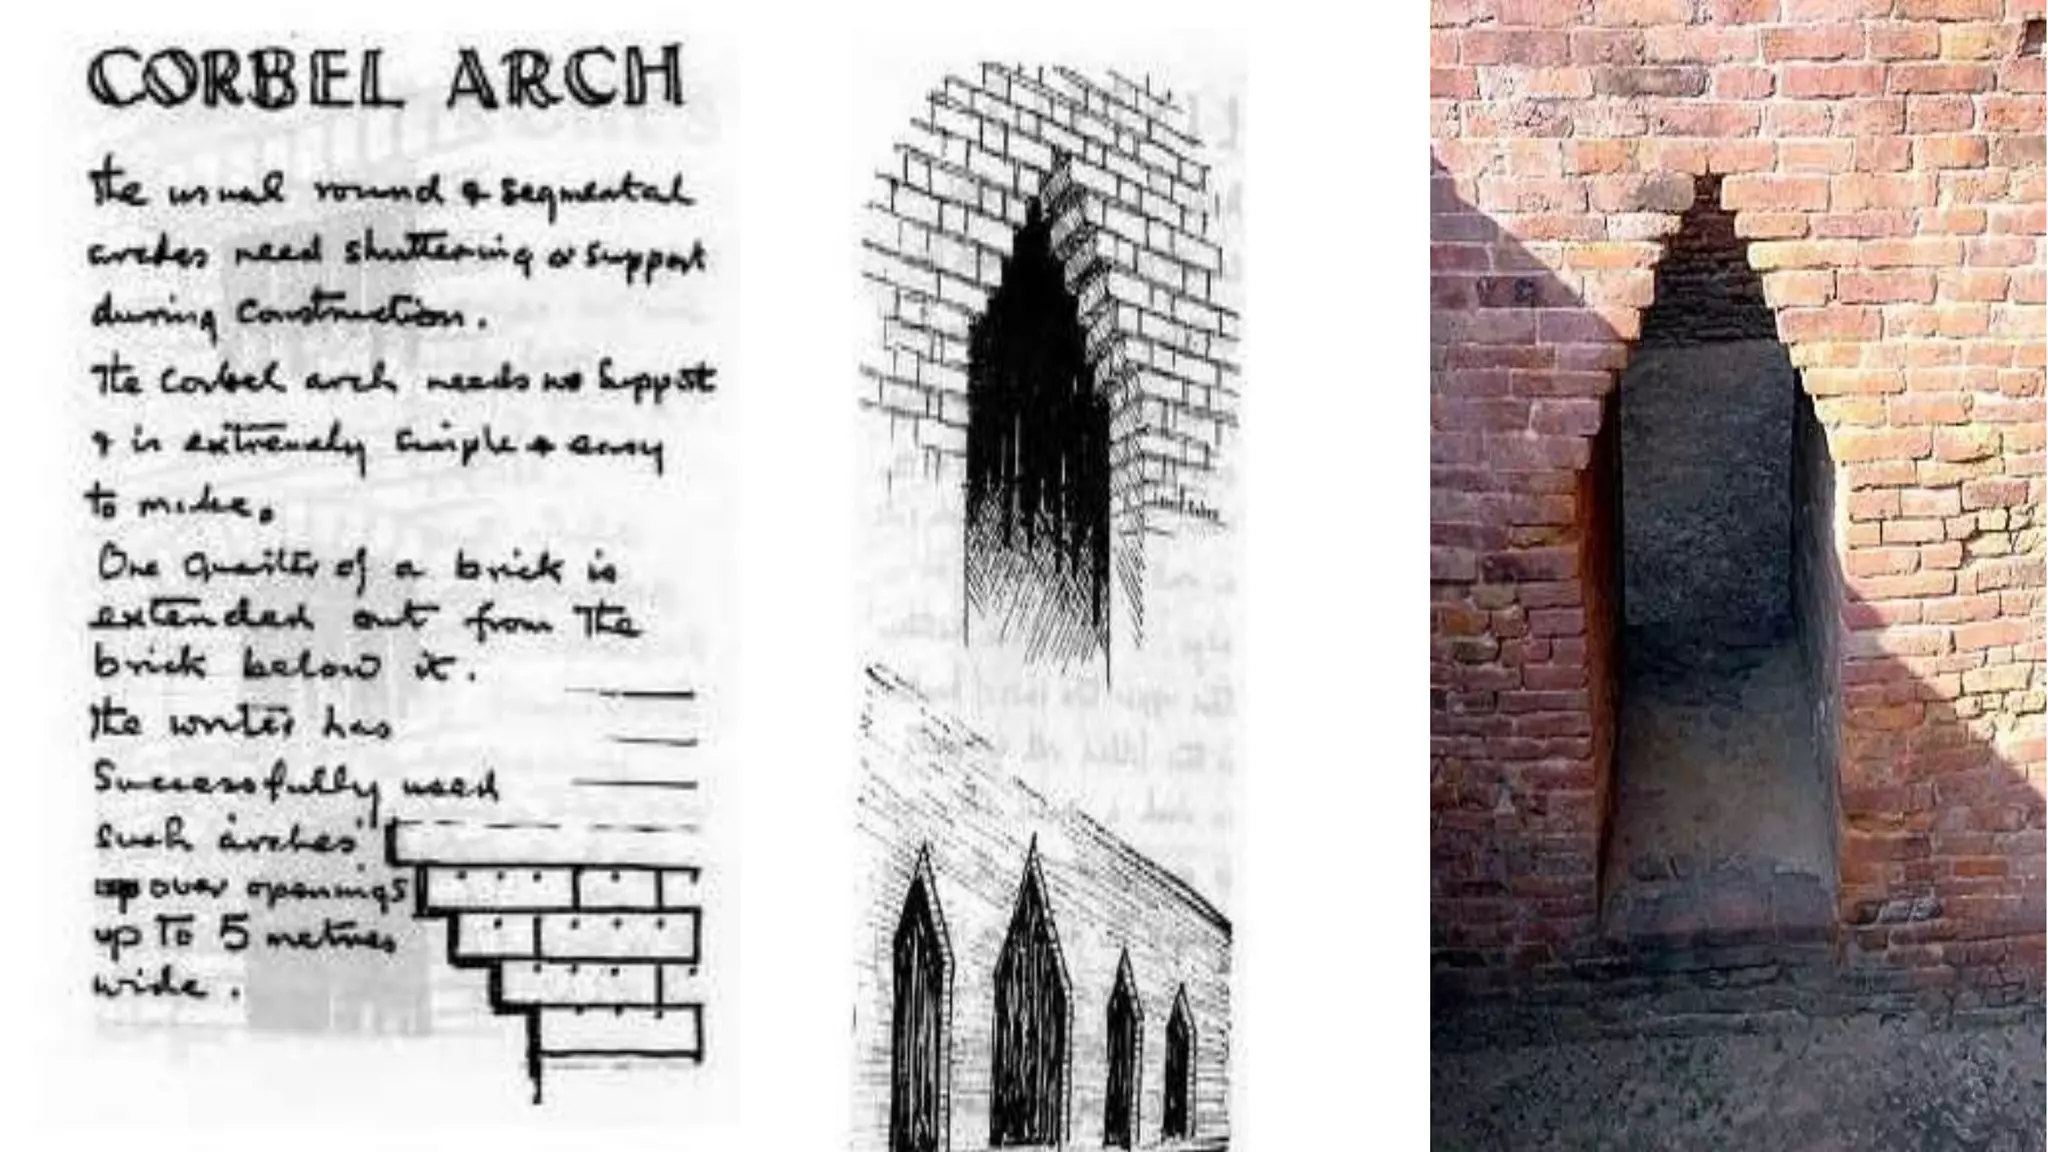 CORBEL ARCH
The usual round & segmental
arches need shuttering or support
during construction.
The Corbel arch needs no Support
& is extremely simple & easy
to make.
One Quarter of a brick is
extended out from The
brick below it.
The writer has
Successfully used
such arches
over openings
up To 5 metres
wide.